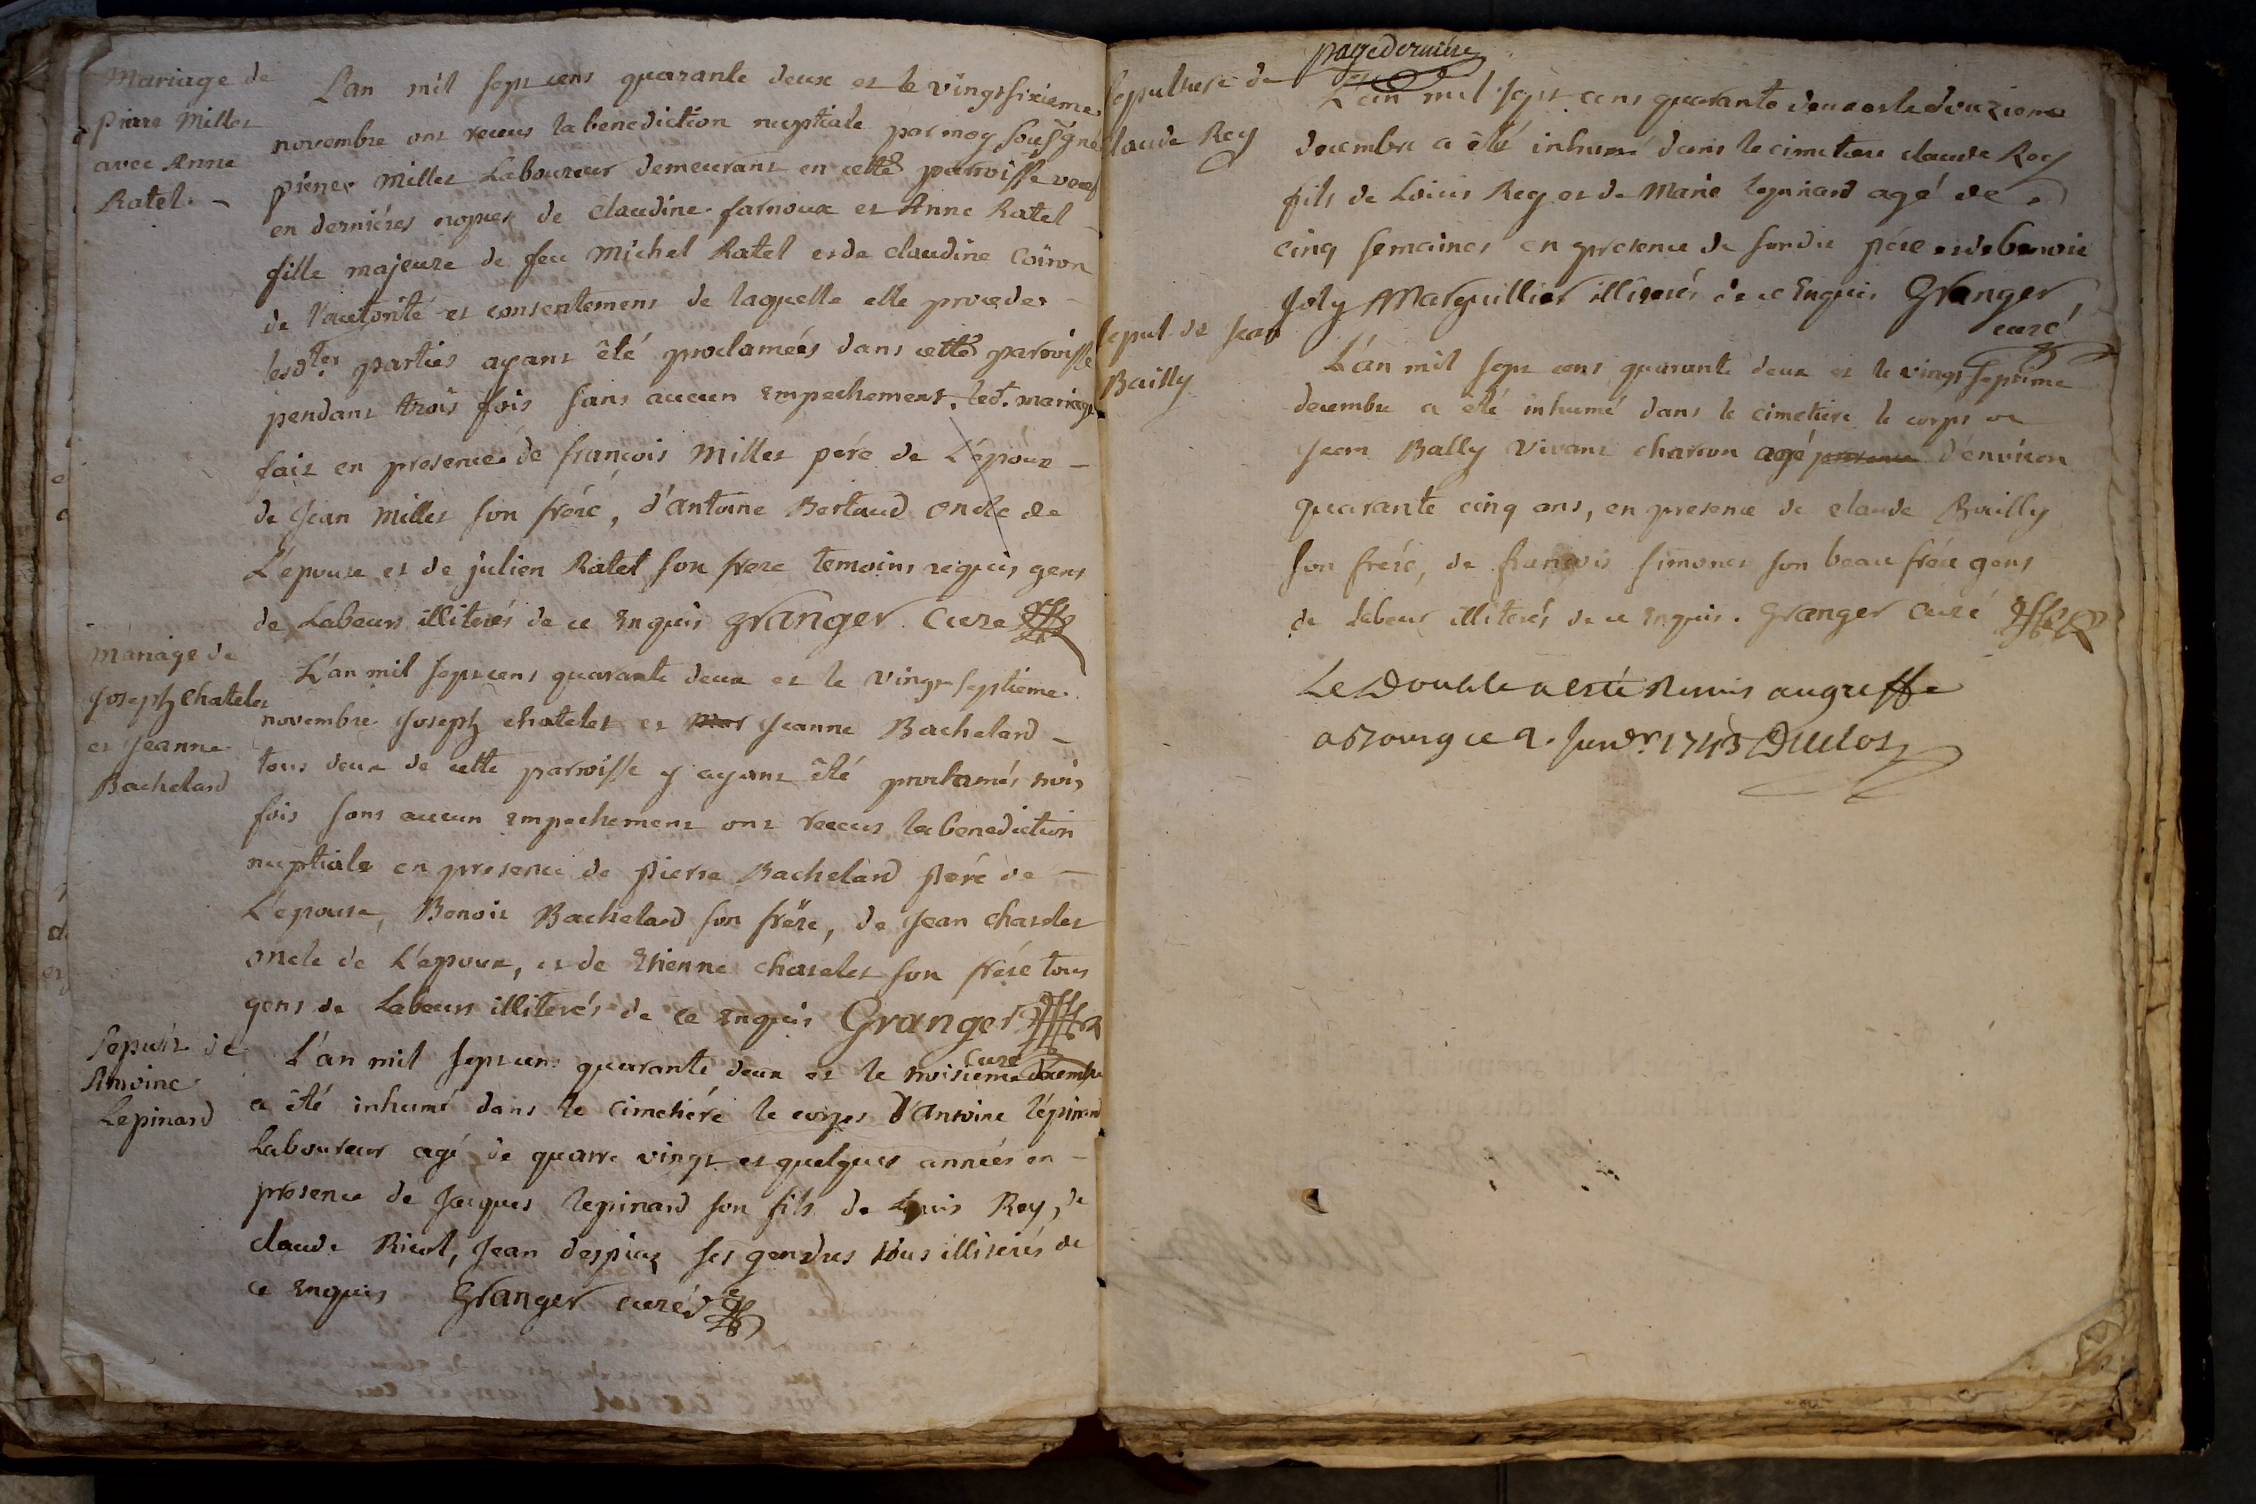 Mariage de
pierre Millet
avec Anne
Ratel. -
L'an mil sept cens quarante deux et le vingt sixieme
novembre ont receus la benediction nuptiale par moy sousigné
pierre Millet Laboureur demeurant en cette paroisse veuf
en derniéres nopces de claudine farnoux et Anne Ratel
fille majeure de feu Michel Ratel et de claudine Coiron
de l'autorité et consentement de laquelle elle procede
lesdtes parties ayant été proclamées dans cette paroisse
pendant trois fois sans aucun empechement. led. mariage
fait en presence de françois Millet pére de L'epoux -
de Jean Millet son frére, d'antoine Bertaud oncle de
L'epouse et de julien Ratel son frere temoins requis gens
de Labeurs illiterés de ce Enquis Granger Curé
Mariage de
Joseph Chatelet
et Jeanne
Bachelard
L'an mil sept cens quarante deux et le vingt septieme
novembre Joseph chatelet et Mar Jeanne Bachelard -
tous deux de cette paroisse y ayant été proclamés trois
fois sans aucun empechement ont receus la benediction
nuptiale en presence de pierre Bachelard pére de -
L'epouse, Benoit Bachelard son frére, de Jean chatelet
oncle de L'epoux, et de Etienne chatelet son frére tous
gens de Labeurs illiterés de ce Enquis Granger
curé
Sepult de
Antoine
Lepinard
L'an mil sept cens quarante deux et le troisieme decembre
a été inhumé dans le cimetiére le corps d'Antoine lépinard
Laboureur agé de quatre vingt et quelques années en -
presence de Jacques lepinard son fils de Louis Rey, de
claude Jean despias ses gendres tous illiterés de
ce Enquis Granger curé
page derniére
Sepulture de
claude Rey
L'an mil sept cens quarante deux et le douzieme
decembre a été inhumé dans le cimetiere claude Rey
fils de Loüis Rey et de Marie lepinard agé de
cinq semaines en presence de sondit pére et de benoit
Joly Marguillier illiterés de ce Enquis Granger
curé
sepul de Jean
Bailly
L'an mil sept cens quarante deux et le vingt septime
decembre a été inhumé dans le cimetiere le corps de
Jean Bally vivant charon agé presence d'environ
quarante cinq ans, en presence de claude Bailly
son frére, de françois simonet son beau frére gens
de labeur illiterés de ce Enquis. Granger curé
Le Double a esté Remis au greffe
a Bourg ce 2. Janvr. 1743 Duclos